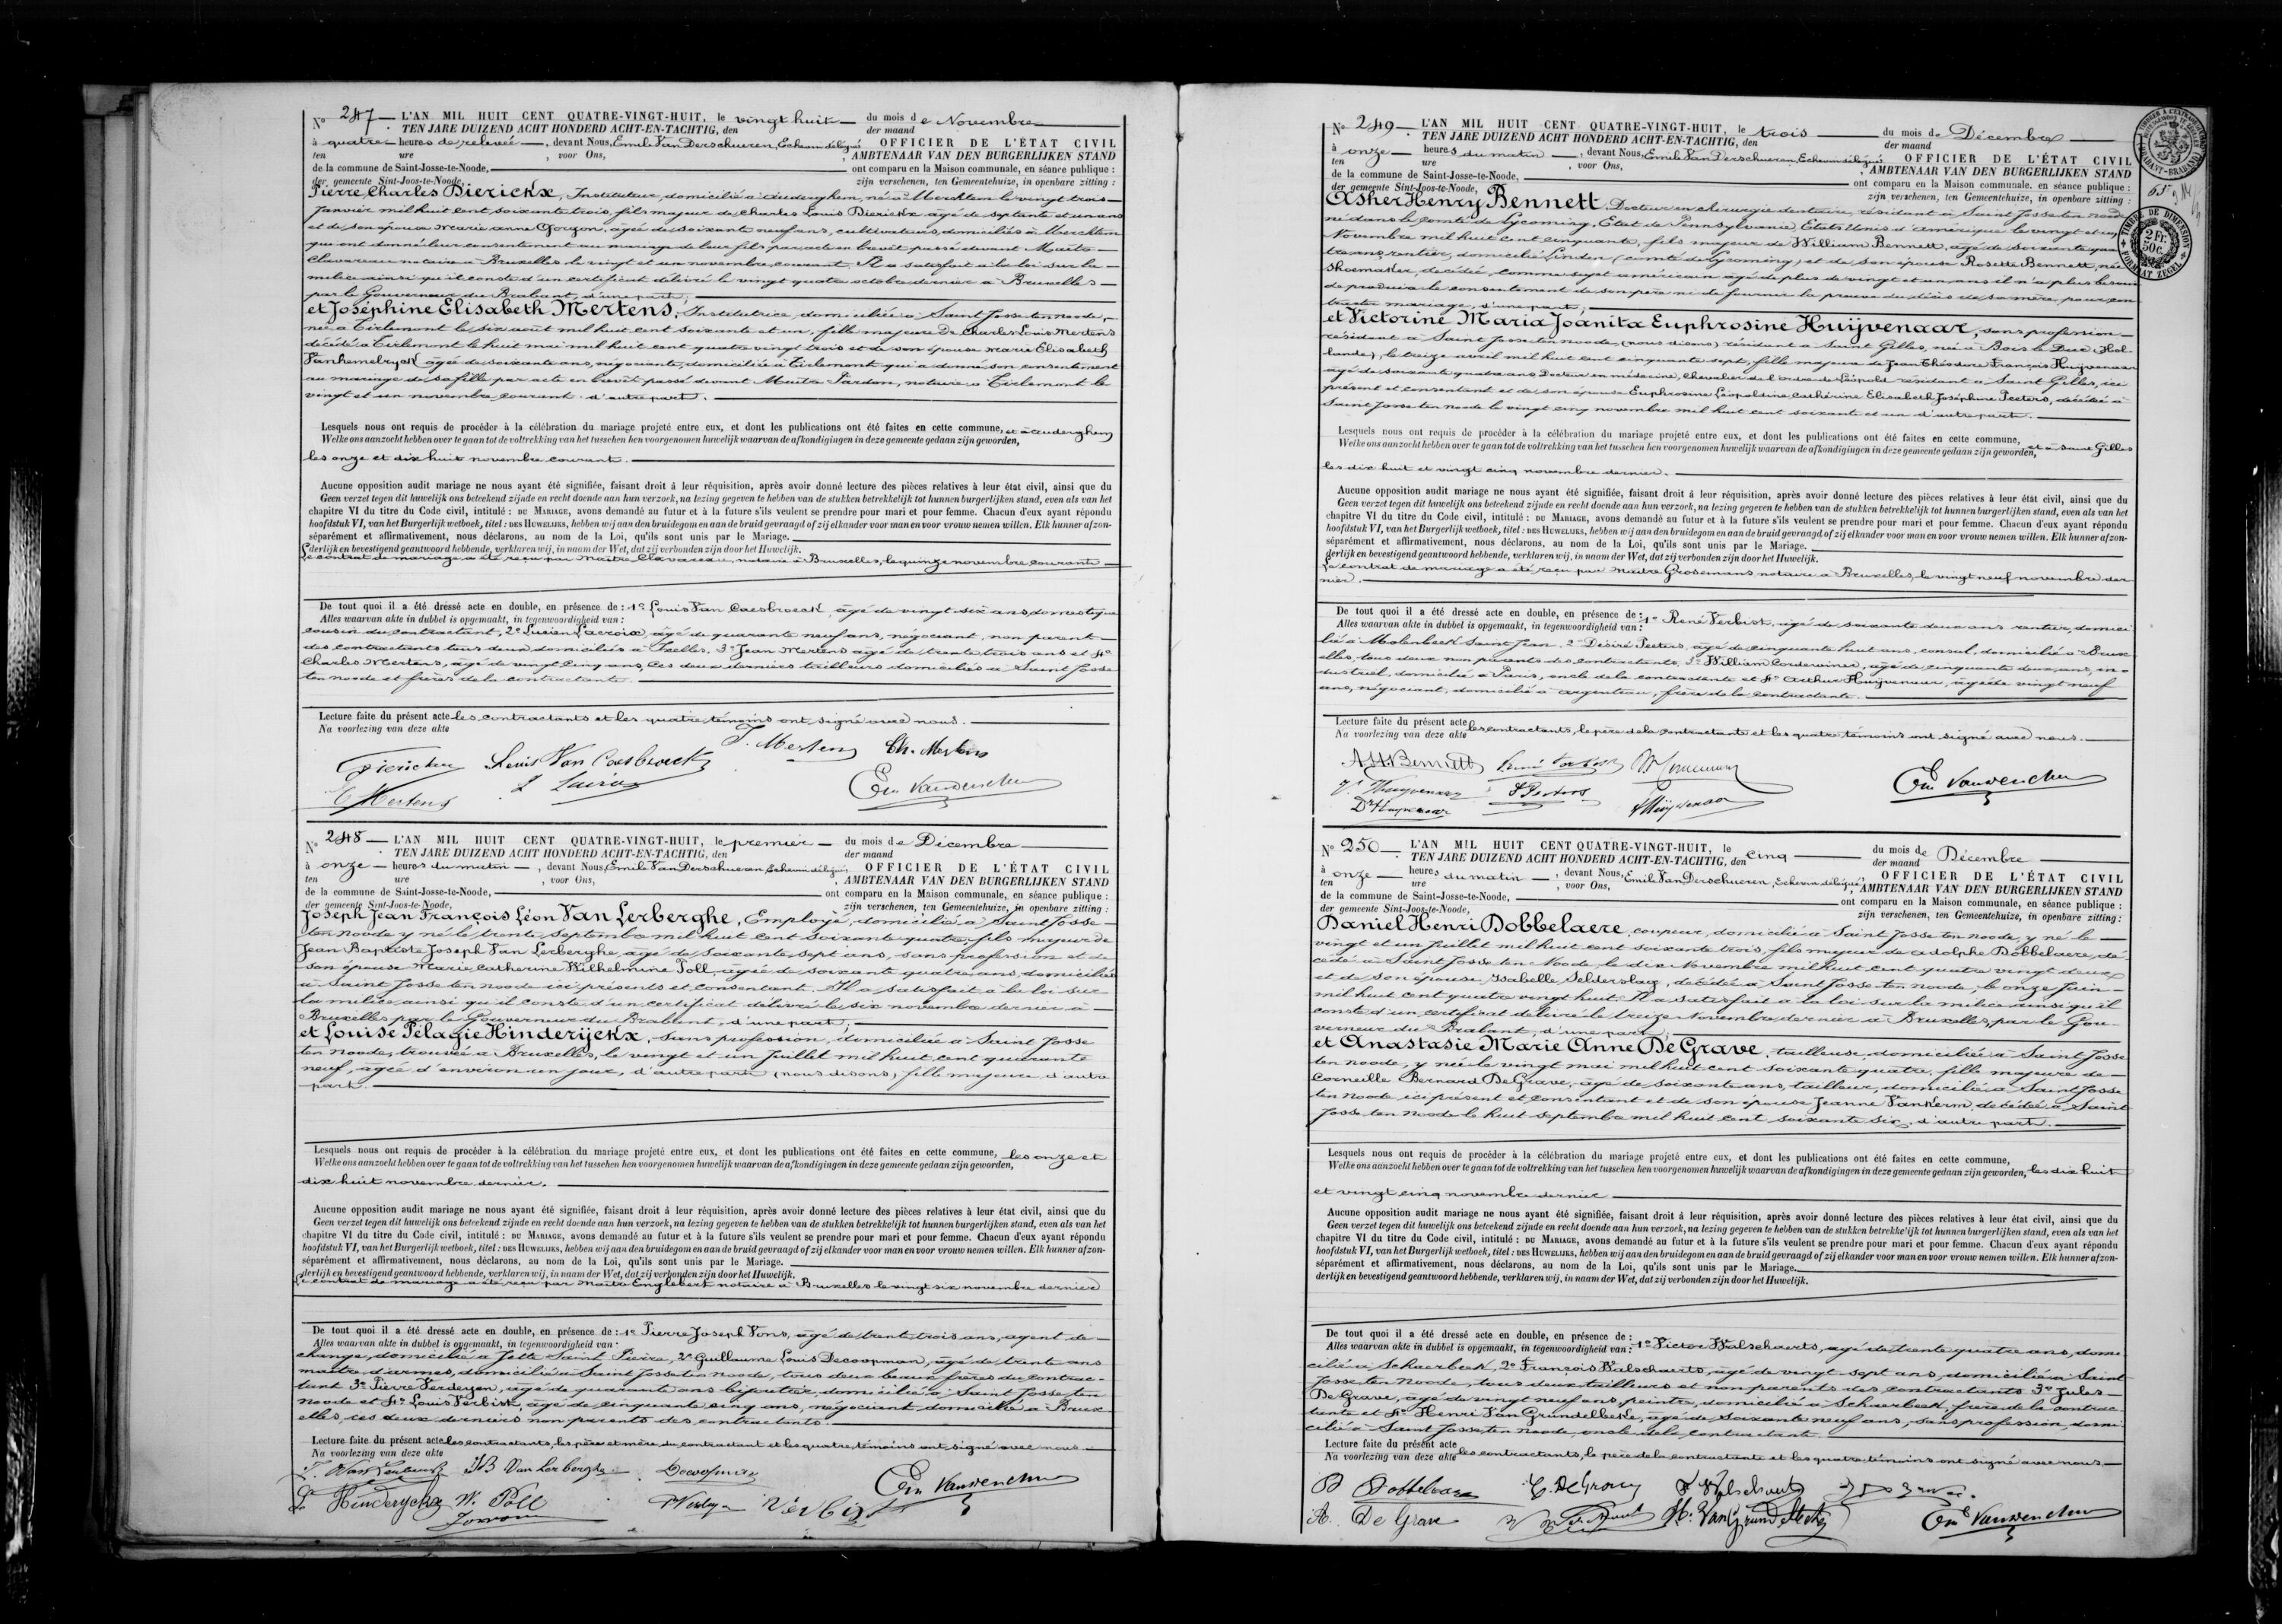 Nº 247 L'AN MIL HUIT CENT QUATRE-VINGT-HUIT, le vingt huit du mois de Novembre
TEN JARE DUIZEND ACHT HONDERD ACHT-EN-TACHTIG, den der maand
à quatre heures de relevée, devant Nous, Emile Van Derschueren, Echevin délégué OFFICIER DE L'ÉTAT CIVIL
ten ure , voor Ons, , AMBTENAAR VAN DEN BURGERLIJKEN STAND
de la commune de Saint-Josse-te-Noode, ont comparu en la Maison communale, en séance publique :
der gemeente Sint-Joos-te-Noode, zijn verschenen, ten Gemeentehuize, in openbare zitting :
Pierre Charles Dierickx, Instituteur, domicilié à Auderghem, né à Merchtem le vingt trois
Janvier mil huit cent soixante trois, fils majeur de Charles Louis Dierickx âgé de septante et un ans
et de son épouse Marie Anne Gorzon, âgée de soixante neuf ans, cultivateurs, domiciliés à Merchtem
qui ont donné leur consentement au mariage de leur fils par acte en brevet passé devant Maître
Clavareau notaire à Bruxelles le vingt et un novembre courant. Il a satisfait à la loi sur la
milice ainsi qu'il conste d'un certificat délivré le vingt quatre octobre dernier à Bruxelles
par le Gouverneur du Brabant, d'une part;
et Joséphine Elisabeth Mertens, Institutrice, domiciliée à Saint Josse ten noode,
née à Tirlemont le six août mil huit cent soixante et un, fille majeure de Charles Louis Mertens
décédé à Tirlemont le huit mai mil huit cent quatre vingt trois et de son épouse Marie Elisabeth
Vanhemelryck âgée de soixante ans, négociante, domiciliée à Tirlemont qui a donné son consentement
au mariage de sa fille par acte en brevet passé devant Maître Pardon, notaire à Tirlemont le
vingt et un novembre courant. d'autre part.
Lesquels nous ont requis de procéder à la célébration du mariage projeté entre eux, et dont les publications ont été faites en cette commune, et à Auderghem
Welke ons aanzocht hebben over te gaan tot de voltrekking van het tusschen hen voorgenomen huwelijk waarvan de afkondigingen in deze gemeente gedaan zijn geworden,
les onze et dix huit novembre courant.
Aucune opposition audit mariage ne nous ayant été signifiée, faisant droit à leur réquisition, après avoir donné lecture des pièces relatives à leur état civil, ainsi que du
Geen verzet tegen dit huwelijk ons beteekend zijnde en recht doende aan hun verzoek, na lezing gegeven te hebben van de stukken betrekkelijk tot hunnen burgerlijken stand, even als van het
chapitre VI du titre du Code civil, intitulé : DU MARIAGE, avons demandé au futur et à la future s'ils veulent se prendre pour mari et pour femme. Chacun d'eux ayant répondu
hoofdstuk VI, van het Burgerlijk wetboek, titel : DES HUWELIJKS, hebben wij aan den bruidegom en aan de bruid gevraagd of zij elkander voor man en voor vrouw nemen willen. Elk hunner afzon-
séparément et affirmativement, nous déclarons, au nom de la Loi, qu'ils sont unis par le Mariage.
derlijk en bevestigend geantwoord hebbende, verklaren wij, in naam der Wet, dat zij verbonden zijn door het Huwelijk.
Le contrat de mariage a été reçu par Maître Clavareau, notaire à Bruxelles, le quinze novembre courant
De tout quoi il a été dressé acte en double, en présence de : 1º Louis Van Caesbroeck, âgé de vingt six ans, domestique
Alles waarvan akte in dubbel is opgemaakt, in tegenwoordigheid van :
cousin du contractant, 2º Lucien Lacroix, âgé de quarante neuf ans, négociant, non parent
des contractants tous deux domiciliés à Ixelles, 3º Jean Mertens âgé de trente trois ans et 4º
Charles Mertens, âgé de vingt cinq ans, ces deux derniers tailleurs domiciliés à Saint Josse
ten noode et frères de la contractante.
Lecture faite du présent acte les contractants et les quatre témoins ont signé avec nous.
Na voorlezing van deze akte
Dierickx Louis Van Caesbroeck J. Mertens Ch. Mertens
E Mertens L Lacroix Em Vanderschueren
Nº 248 L'AN MIL HUIT CENT QUATRE-VINGT-HUIT, le premier du mois de Décembre
TEN JARE DUIZEND ACHT HONDERD ACHT-EN-TACHTIG, den der maand
à onze heures du matin, devant Nous, Emile Van Derschueren Echevin délégué, OFFICIER DE L'ÉTAT CIVIL
ten ure , voor Ons, , AMBTENAAR VAN DEN BURGERLIJKEN STAND
de la commune de Saint-Josse-te-Noode, ont comparu en la Maison communale, en séance publique :
der gemeente Sint-Joos-te-Noode, zijn verschenen, ten Gemeentehuize, in openbare zitting :
Joseph Jean François Léon Van Lerberghe, Employé, domicilié à Saint Josse
ten noode y né le trente Septembre mil huit cent soixante quatre, fils majeur de
Jean Baptiste Joseph Van Lerberghe, âgé de soixante sept ans, sans profession et de
son épouse Marie Catherine Wilhelmine Poll, âgée de soixante quatre ans, domiciliés
à Saint Josse ten noode ici présents et consentants. Il a satisfait à la loi sur
la milice ainsi qu'il conste d'un certificat délivré le six novembre dernier à
Bruxelles par le Gouverneur du Brabant, d'une part;
et Louise Pélagie Hinderijckx, sans profession, domiciliée à Saint Josse
ten noode, trouvée à Bruxelles, le vingt et un Juillet mil huit cent quarante
neuf, âgée d'environ un jour, d'autre part (nous disons) fille majeure, d'autre
part.
Lesquels nous ont requis de procéder à la célébration du mariage projeté entre eux, et dont les publications ont été faites en cette commune, les onze et
Welke ons aanzocht hebben over te gaan tot de voltrekking van het tusschen hen voorgenomen huwelijk waarvan de afkondigingen in deze gemeente gedaan zijn geworden,
dix huit novembre dernier.
Aucune opposition audit mariage ne nous ayant été signifiée, faisant droit à leur réquisition, après avoir donné lecture des pièces relatives à leur état civil, ainsi que du
Geen verzet tegen dit huwelijk ons beteekend zijnde en recht doende aan hun verzoek, na lezing gegeven te hebben van de stukken betrekkelijk tot hunnen burgerlijken stand, even als van het
chapitre VI du titre du Code civil, intitulé : DU MARIAGE, avons demandé au futur et à la future s'ils veulent se prendre pour mari et pour femme. Chacun d'eux ayant répondu
hoofdstuk VI, van het Burgerlijk wetboek, titel : DES HUWELIJKS, hebben wij aan den bruidegom en aan de bruid gevraagd of zij elkander voor man en voor vrouw nemen willen. Elk hunner afzon-
séparément et affirmativement, nous déclarons, au nom de la Loi, qu'ils sont unis par le Mariage.
derlijk en bevestigend geantwoord hebbende, verklaren wij, in naam der Wet, dat zij verbonden zijn door het Huwelijk.
Le contrat de mariage a été reçu par Maître Englebert notaire à Bruxelles le vingt six novembre dernier
De tout quoi il a été dressé acte en double, en présence de : 1º Pierre Joseph Vons, âgé de trente trois ans, agent de
Alles waarvan akte in dubbel is opgemaakt, in tegenwoordigheid van :
change, domicilié à Jette Saint Pierre, 2º Guillaume Louis Decoopman, âgé de trente ans
maître d'armes, domicilié à Saint Josse ten noode, tous deux beaux frères du contrac-
tant 3º Pierre Verdeyen, âgé de quarante ans bijoutier, domicilié à Saint Josse ten
noode et 4º Louis Verbist, âgé de cinquante cinq ans, négociant domicilié à Brux-
elles, ces deux derniers non parents des contractants.
Lecture faite du présent acte les contractants, les père et mère du contractant et les quatre témoins ont signé avec nous
Na voorlezing van deze akte
J. Van Lerberghe JB Van Lerberghe Decoopman Em Vanderschueren
L. Hinderyckx W. Poll PVerdeyen Verbist
Nº 249 L'AN MIL HUIT CENT QUATRE-VINGT-HUIT, le trois du mois de Décembre
TEN JARE DUIZEND ACHT HONDERD ACHT-EN-TACHTIG, den der maand
à onze heures du matin, devant Nous, Emile Van Derschueren, Echevin délégué OFFICIER DE L'ÉTAT CIVIL
ten ure , voor Ons, , AMBTENAAR VAN DEN BURGERLIJKEN STAND
de la commune de Saint-Josse-te-Noode, ont comparu en la Maison communale, en séance publique :
der gemeente Sint-Joos-te-Noode, zijn verschenen, ten Gemeentehuize, in openbare zitting :
TIMBRE DE DIMENSION
2 Fr. 50c.
FORMAAT ZEGEL
Asher Henry Bennett, Docteur en chirurgie dentaire, résidant à Saint Josse ten noode
né dans le comté de Lycoming, Etat de Pennsylvanie, Etats Unis d'Amérique le vingt et un
Novembre mil huit cent cinquante, fils majeur de William Bennett, âgé de soixante qua-
tre ans, rentier, domicilié Linden (comté de Lycoming) et de son épouse Rosette Bennett, née
Shoemaker, décédée, comme sujet américain âgé de plus de vingt et un ans il n'a plus besoin
de produire le consentement de son père ni de fournir la preuve du décès de sa mère, pour con-
tracter mariage, d'une part;
et Victorine Maria Joánita Euphrosine Huijvenaar, sans profession
résidant à Saint Josse ten noode, (nous disons) résidant à Saint Gilles, née à Bois le Duc (Hol-
lande), le treize avril mil huit cent cinquante sept, fille majeure de Jean Théodore François Huijvenaar
âgé de soixante quatre ans, Docteur en médecine, Chevalier de l'ordre de Léopold résidant à Saint Gilles, ici
présent et consentant et de son épouse Euphrosine Léopoldine Cathérine Elisabeth Joséphine Peeters, décédée à
Saint Josse ten noode le vingt cinq novembre mil huit cent soixante et un d'autre part.
Lesquels nous ont requis de procéder à la célébration du mariage projeté entre eux, et dont les publications ont été faites en cette commune,
Welke ons aanzocht hebben over te gaan tot de voltrekking van het tusschen hen voorgenomen huwelijk waarvan de afkondigingen in deze gemeente gedaan zijn geworden, et à Saint Gilles
les dix huit et vingt cinq novembre dernier.
Aucune opposition audit mariage ne nous ayant été signifiée, faisant droit à leur réquisition, après avoir donné lecture des pièces relatives à leur état civil, ainsi que du
Geen verzet tegen dit huwelijk ons beteekend zijnde en recht doende aan hun verzoek, na lezing gegeven te hebben van de stukken betrekkelijk tot hunnen burgerlijken stand, even als van het
chapitre VI du titre du Code civil, intitulé : DU MARIAGE, avons demandé au futur et à la future s'ils veulent se prendre pour mari et pour femme. Chacun d'eux ayant répondu
hoofdstuk VI, van het Burgerlijk wetboek, titel : DES HUWELIJKS, hebben wij aan den bruidegom en aan de bruid gevraagd of zij elkander voor man en voor vrouw nemen willen. Elk hunner afzon-
séparément et affirmativement, nous déclarons, au nom de la Loi, qu'ils sont unis par le Mariage.
derlijk en bevestigend geantwoord hebbende, verklaren wij, in naam der Wet, dat zij verbonden zijn door het Huwelijk.
Le contrat de mariage a été reçu par Maître Grosemans notaire à Bruxelles, le vingt neuf novembre der-
nier.
De tout quoi il a été dressé acte en double, en présence de : 1º René Verbist, âgé de soixante deux ans rentier, domici-
Alles waarvan akte in dubbel is opgemaakt, in tegenwoordigheid van :
lié à Molenbeek Saint Jean 2º Désiré Peeters, âgé de cinquante huit ans, consul, domicilié à Brux-
elles, tous deux non parents des contractants, 3º William Corderwiner, âgé de cinquante deux ans, in-
dustriel, domicilié à Paris, oncle de la contractante et 4º Arthur Huijvenaar, âgé de vingt neuf
ans, négociant, domicilié à Argenteau, frère de la contractante.
Lecture faite du présent acte les contractants, le père de la contractante et les quatre témoins ont signé avec nous.
Na voorlezing van deze akte
A.H.Bennett René Verbist
V. Huijvenaar D Peeters Em Vanderschueren
Dr Huijvenaar A Huijvenaar
Nº 250 L'AN MIL HUIT CENT QUATRE-VINGT-HUIT, le cinq du mois de Décembre
TEN JARE DUIZEND ACHT HONDERD ACHT-EN-TACHTIG, den der maand
à onze heures du matin, devant Nous, Emile Van Derschueren, Echevin délégué, OFFICIER DE L'ÉTAT CIVIL
ten ure , voor Ons, , AMBTENAAR VAN DEN BURGERLIJKEN STAND
de la commune de Saint-Josse-te-Noode, ont comparu en la Maison communale, en séance publique :
der gemeente Sint-Joos-te-Noode, zijn verschenen, ten Gemeentehuize, in openbare zitting :
Daniel Henri Dobbelaere, coupeur, domicilié à Saint Josse ten noode, y né le
vingt et un Juillet mil huit cent soixante trois, fils majeur de Adolphe Dobbelaere, dé-
cédé à Saint Josse ten Noode le dix Novembre mil huit cent quatre vingt deux
et de son épouse Isabelle Selderslag, décédée à Saint Josse ten noode, le onze Juin
mil huit cent quatre vingt huit. Il a satisfait à la loi sur la milice ainsi qu'il
conste d'un certificat délivré le treize Novembre dernier à Bruxelles, par le Gou-
verneur du Brabant, d'une part;
et Anastasie Marie Anne De Grave, tailleuse, domiciliée à Saint Josse
ten noode, y née le vingt mai mil huit cent soixante quatre, fille majeure de
Corneille Bernard De Grave, âgé de soixante ans, tailleur, domicilié à Saint Josse
ten Noode ici présent et consentant et de son épouse Jeanne VanKerm, décédée à Saint
Josse ten Noode le huit septembre mil huit cent soixante six, d'autre part.
Lesquels nous ont requis de procéder à la célébration du mariage projeté entre eux, et dont les publications ont été faites en cette commune,
Welke ons aanzocht hebben over te gaan tot de voltrekking van het tusschen hen voorgenomen huwelijk waarvan de afkondigingen in deze gemeente gedaan zijn geworden, les dix huit
et vingt cinq novembre dernier
Aucune opposition audit mariage ne nous ayant été signifiée, faisant droit à leur réquisition, après avoir donné lecture des pièces relatives à leur état civil, ainsi que du
Geen verzet tegen dit huwelijk ons beteekend zijnde en recht doende aan hun verzoek, na lezing gegeven te hebben van de stukken betrekkelijk tot hunnen burgerlijken stand, even als van het
chapitre VI du titre du Code civil, intitulé : DU MARIAGE, avons demandé au futur et à la future s'ils veulent se prendre pour mari et pour femme. Chacun d'eux ayant répondu
hoofdstuk VI, van het Burgerlijk wetboek, titel : DES HUWELIJKS, hebben wij aan den bruidegom en aan de bruid gevraagd of zij elkander voor man en voor vrouw nemen willen. Elk hunner afzon-
séparément et affirmativement, nous déclarons, au nom de la Loi, qu'ils sont unis par le Mariage.
derlijk en bevestigend geantwoord hebbende, verklaren wij, in naam der Wet, dat zij verbonden zijn door het Huwelijk.
De tout quoi il a été dressé acte en double, en présence de : 1º Victor Walschaerts, âgé de trente quatre ans, domi-
Alles waarvan akte in dubbel is opgemaakt, in tegenwoordigheid van :
cilié à Schaerbeek, 2º François Walschaerts, âgé de vingt sept ans, domicilié à Saint
Josse ten Noode, tous deux tailleurs et non parents des contractants 3º Jules
De Grave, âgé de vingt neuf ans, peintre, domicilié à Schaerbeek, frère de la contrac-
tante et 4º Henri Van Grundelbeke, âgé de soixante neuf ans, sans profession, domi-
cilié à Saint Josse ten noode, oncle de la contractante.
Lecture faite du présent acte les contractants, le père de la contractante et les quatre témoins ont signé avec nous
Na voorlezing van deze akte
D Dobbelaere C. DeGrave F Walschaerts
A. De Grave H. Van Grundelbeke Em Vanderschueren